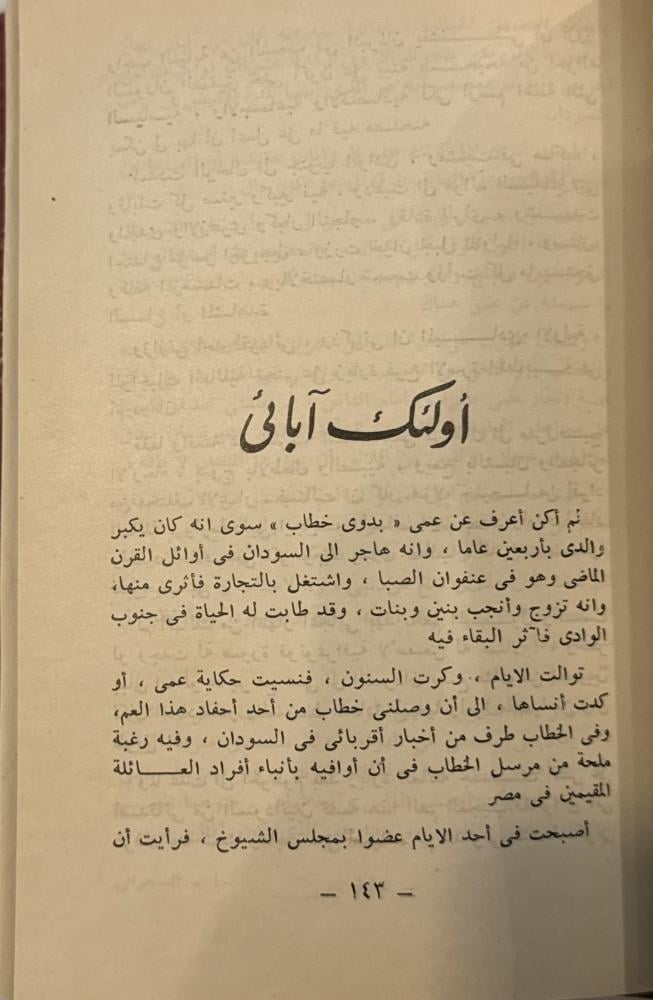 أولئك آبائى
لم أكن أعرف عن عمى « بدوى خطاب » سوى انه كان يكبر
والدى بأربعين عاما ، وانه هاجر الى السودان فى أوائل القرن
الماضى وهو فى عنفوان الصبا ، واشتغل بالتجارة فأثرى منها،
وانه تزوج وأنجب بنين وبنات ، وقد طابت له الحياة فى جنوب
الوادى فآثر البقاء فيه
توالت الايام ، وكرت السنون ، فنسيت حكاية عمى ، أو
كدت أنساها ، الى أن وصلنى خطاب من أحد أحفاد هذا العم،
وفى الخطاب طرف من أخبار أقربائى فى السودان ، وفيه رغبة
ملحة من مرسل الخطاب فى أن أوافيه بأنباء أفراد العـــــائلة
المقيمين فى مصر
أصبحت فى أحد الايام عضوا بمجلس الشيوخ ، فرأيت أن
– ١٤٣ –